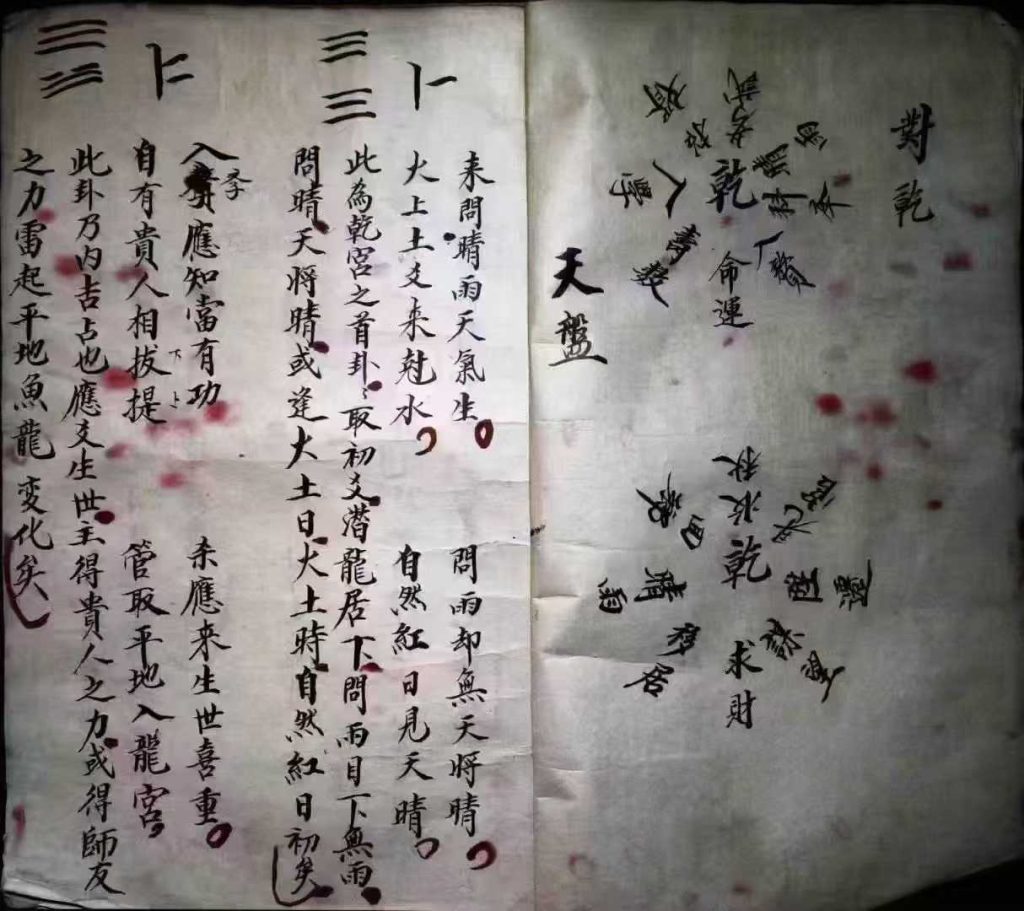 對乾
乾
命運
入學
壽數
乾
求財
移居
晴雨
陞遷
天盤
卜一
来問晴雨天氣生 問雨却無天將晴
火上土爻来尅水 自然紅日見天晴
此為乾宮之首卦取初爻潛龍居下問雨目下無雨
問晴天將晴或逢火土日火土時自然紅日初矣
卜二
入學應知當有功 未應来生世喜重
自有貴人相拔提 管取平地入龍宮
下上
此卦乃内吉占也應爻生世主得貴人之力或得師友
之力雷起平地魚龍变化矣